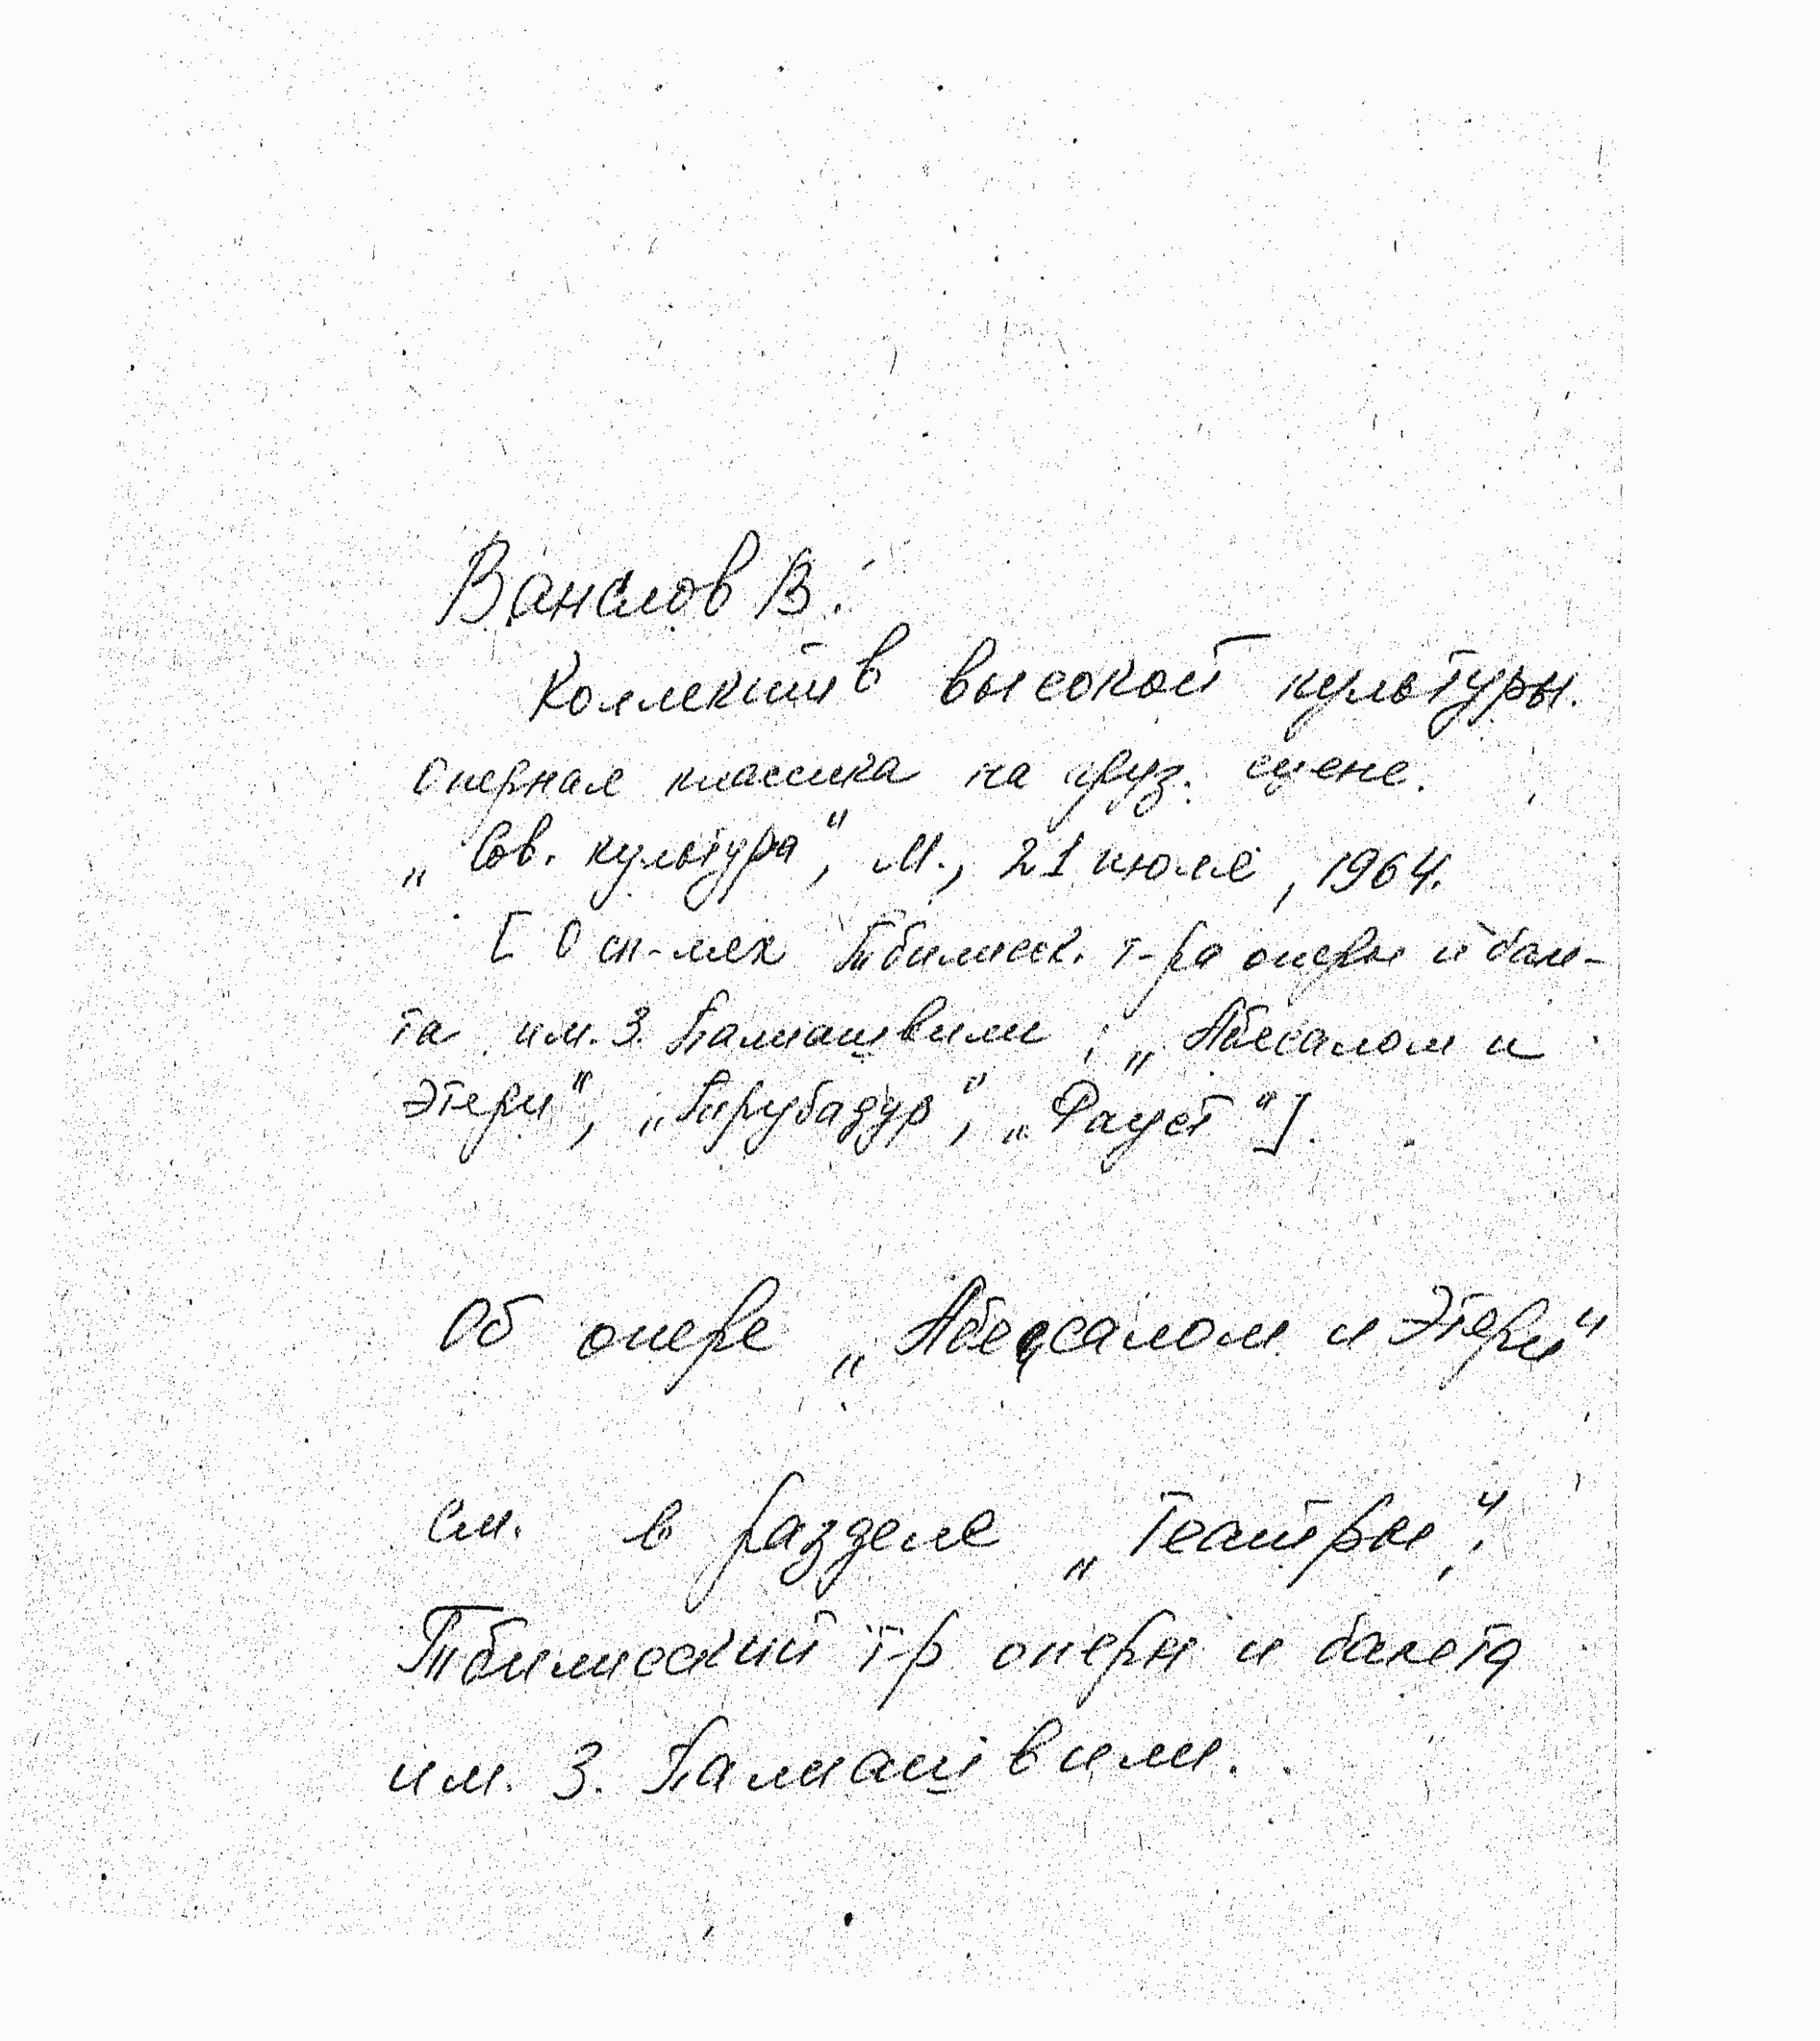 Ванслов В.
Коллектив высокой культуры.
Оперная классика на груз. сцене.
„Сов. культура", М., 21 июля, 1964.
[О сп-лях Тбилисск. т-ра оперы и бале-
та им. З. Палиашвили: „Абесалом и
Этери", „Трубадур", „Фауст"].
Об опере „Абесалом и Этери"
см. в разделе „Театры":
Тбилисский т-р оперы и балета
им. З. Палиашвили.